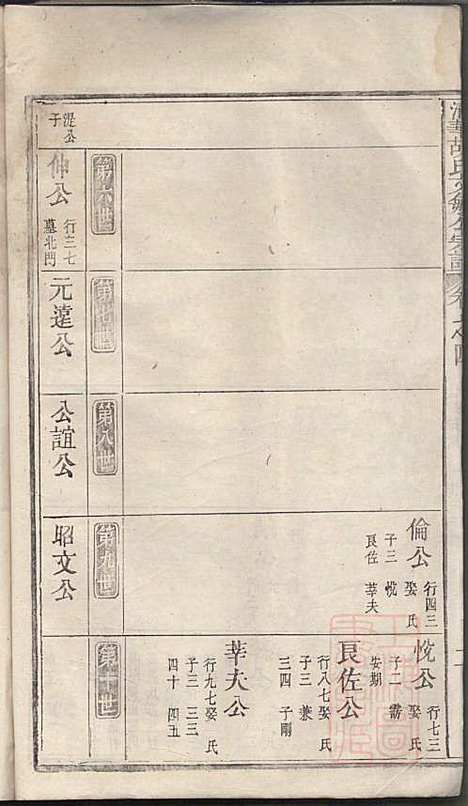 倫公 行四三 娶 氏
子三 悅
良佐 莘夫
悅公 行七三
娶 氏
子二 需
安期
良佐公
行八七娶 氏
子三 兼
三四 子剛
莘夫公
行九七娶 氏
子三 三三
四十 四五
第六世
第七世
第八世
第九世
第十世
湜公
子
仲公 行三七
墓北門
元遠公
公誼公
昭文公